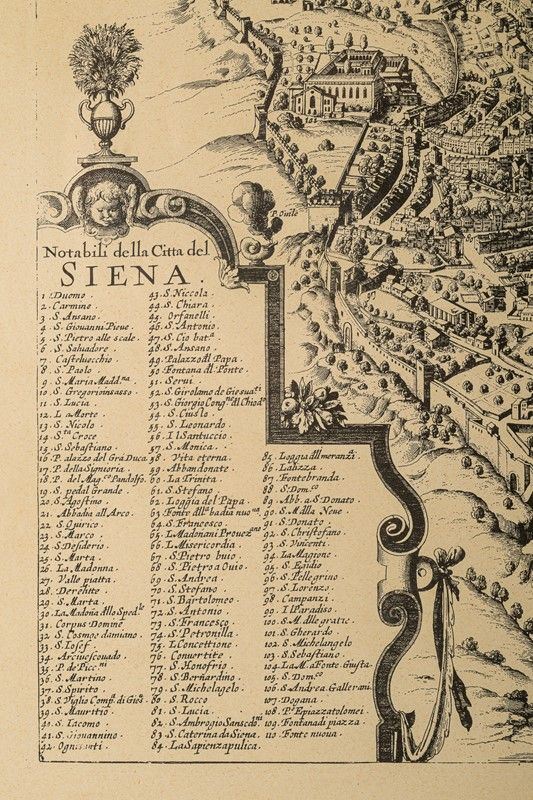 P. Ouile
Notabili della Citta del
SIENA.
1. Duomo.
2. Carmino.
3. S. Ansano.
4. S. Giouanni Pieue.
5. S. Pietro alle scale.
6. S. Saluadore
7. Casteluecchio
8. S. Paolo
9. S. Maria Madd.na
10. S. Gregorioinsasso
11. S. Lucia
12. La Morte.
13. S. Nicolo
14. S.ta Croce
15. S. Sebastiano.
16. Palazzo del Grã Duca
17. P. della Signuoria.
18. P. del Mag.co Pandolfo.
19. S. pedal Grande.
20. S. Agostino
21. Abbadia all Arco.
22. S. Quirico.
23. S. Marco
24. S. Desiderio
25. S. Marta
26. La Madonna.
27. Valle piatta.
28. Derelitte
29. S. Marta.
30. La Madona allo Sped.le
31. Corpus Domine
32. S. Cosmo damiano.
33. S. Iosef.
34. Arciuescouado.
35. P. de Picc.ni
36. S. Martino
37. S. Spirito
38. S. Viglio Comp.a di Gies
39. S. Mauritio
40. S. Iacomo
41. S. Giouannino
42. Ognisanti
43. S. Niccola.
44. S. Chiara.
45. Orfanelli
46. S. Antonio.
47. S. Gio bat.a
48. S. Ansano.
49. Palazzo d'l Papa.
50. Fontana d'l Ponte.
51. Serui.
52. S. Girolamo de Giesuati
53. S. Giorgio Cong.ne d'l Chiod.
54. S. Giusto.
55. S. Leonardo.
56. Il Santuccio.
57. S. Monica.
58. Vita eterna.
59. Abbandonate.
60. La Trinita.
61. S. Stefano
62. Loggia del Papa.
63. Fonte dlla badia nuoua
64. S. Francesco.
65. La Madonani Prouezano
66. La Misericordia.
67. S. Pietro buio
68. S. Pietro a Ouio.
69. S. Andrea.
70. S. Stefano
71. S. Bartolomeo
72. S. Antonio.
73. S. Francesco.
74. S. Petronilla.
75. I. Concettione
76. Conuertite
77. S. Honofrio.
78. S. Bernardino
79. S. Michelagelo
80. S. Rocco
81. S. Lucia
82. S. Ambrogio Sansedo.ni
83. S. Caterina da Siena.
84. La Sapienzapulica.
85. Loggia dll meranzi
86. La Lizza.
87. Fontebranda.
88. S. Dom.co
89. Abb. a S. Donato.
90. S. M. dlla Neue
91. S. Donato
92. S. Christofano.
93. S. Vincenti.
94. La Magione
95. S. Egidio
96. S. Pellegrino
97. S. Lorenzo.
98. Campanzi
99. Il Paradiso.
100. S. M. dlle gratie.
101. S. Gherardo
102. S. Michelangelo
103. S. Sebastiano.
104. La M. a Fonte Giusta.
105. S. Dom.co
106. S. Andrea Gallerani.
107. Dogana
108. P.a Epiazzatolomei.
109. Fontanadi piazza.
110. Fonte nuoua.